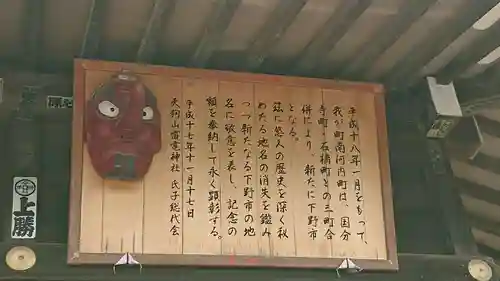 平成十八年一月をもって、
我が町南河内町は、国分
寺町・石橋町との三町合
併により、新たに下野市
となる。
茲に悠久の歴史を深く秋
めたる地名の消失を鑑み
つつ新たなる下野市の地
名に敬意を表し、記念の
額を奉納して永く顕彰する。
平成十七年十一月十七日
天狗山雷電神社 氏子総代会
上